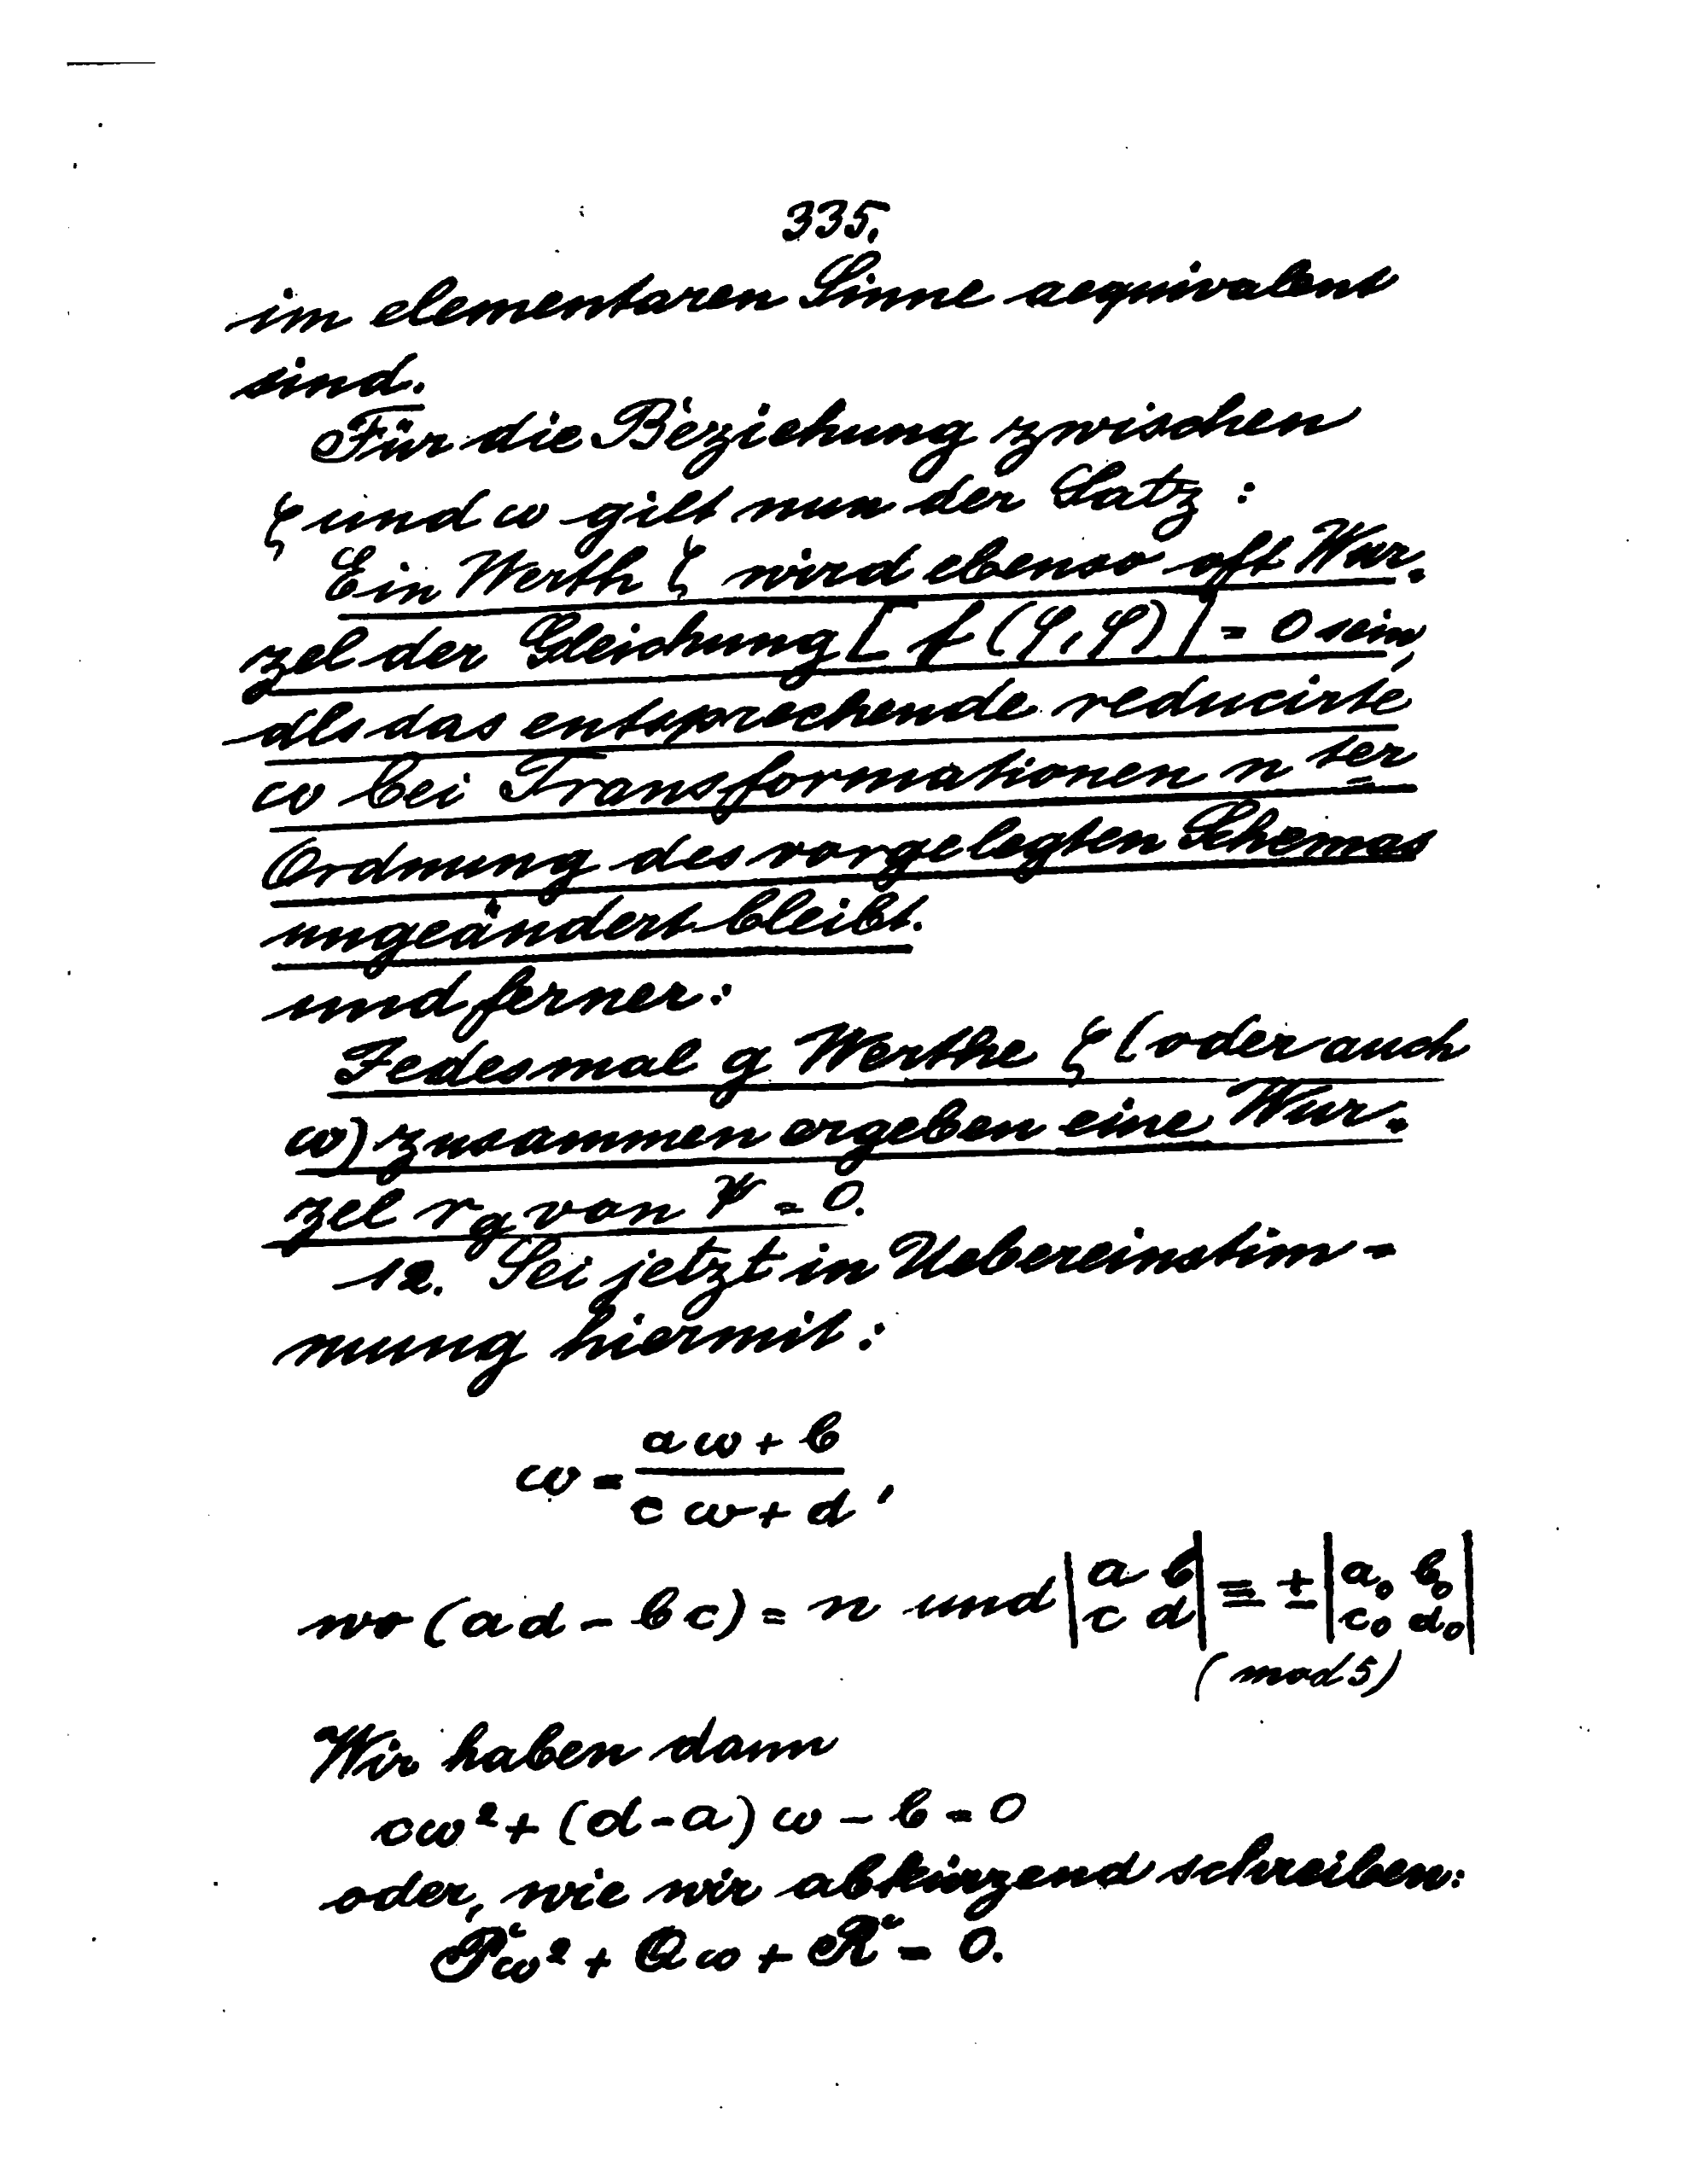 335.
im elementaren Sinne aequivalent
sind.
Für die Beziehung zwischen
ζ und ω gilt nun der Satz :
Ein Werth ζ wird ebenso oft Wur-
zel der Gleichung [f(ζ,ζ)] = 0 sein,
als das entsprechende reducirte
ω bei Transformationen n ter
Ordnung des vorgelegten Schemas
ungeändert bleibt.
und ferner:
Jedesmal g Werthe ζ (oder auch
ω) zusammen ergeben eine Wur-
zel r_g von Ψ = 0.
12. Sei jetzt in Uebereinstim-
mung hiermit:
ω = (aω + b)/(cω + d),
wo (ad - bc) = n und |a b; c d| ≡ ± |a₀ b₀; c₀ d₀|
(mod 5)
Wir haben dann
cω² + (d - a) ω - b = 0
oder, wie wir abkürzend schreiben:
Pω² + Qω + R = 0.